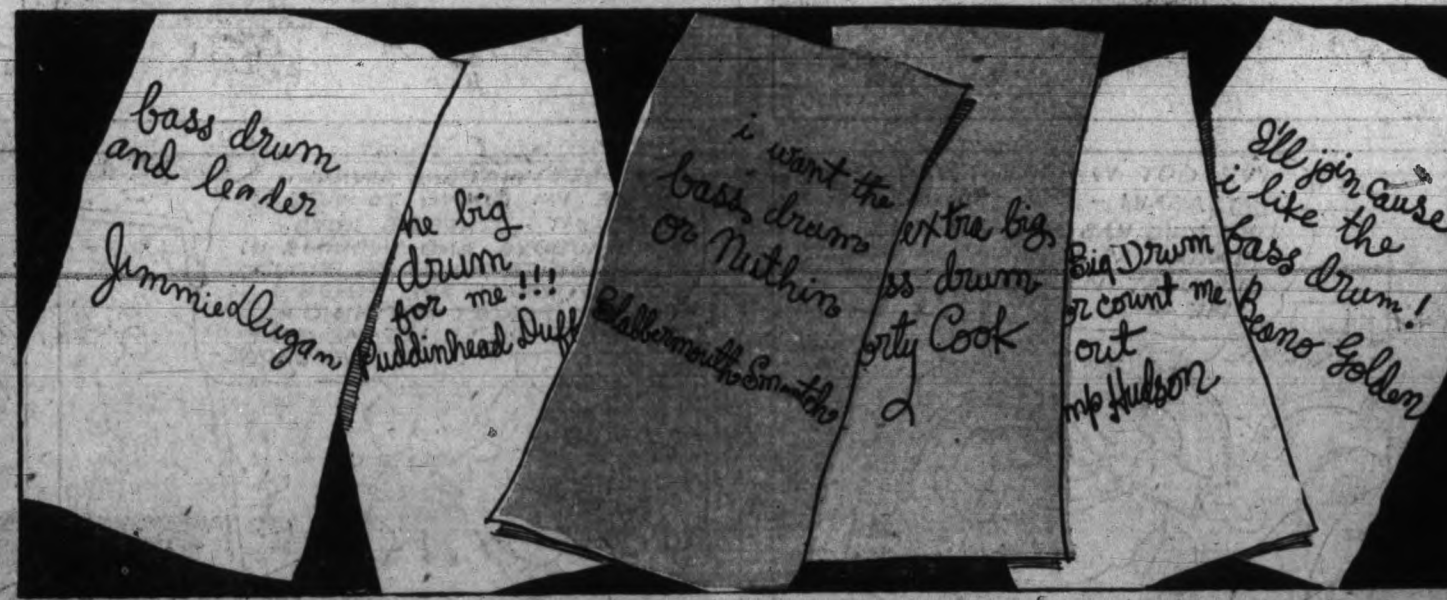 bass drum
and leader
Jimmie Dugan
he big
drum
for me!!!
Puddinhead Duff
i want the
bass drum
or Nuthin
Blabbermouth Smutch
extra big
ss drum
orty Cook
Big Drum
or count me
out
mp Hudson
I'll join cause
i like the
bass drum!
Beano Golden